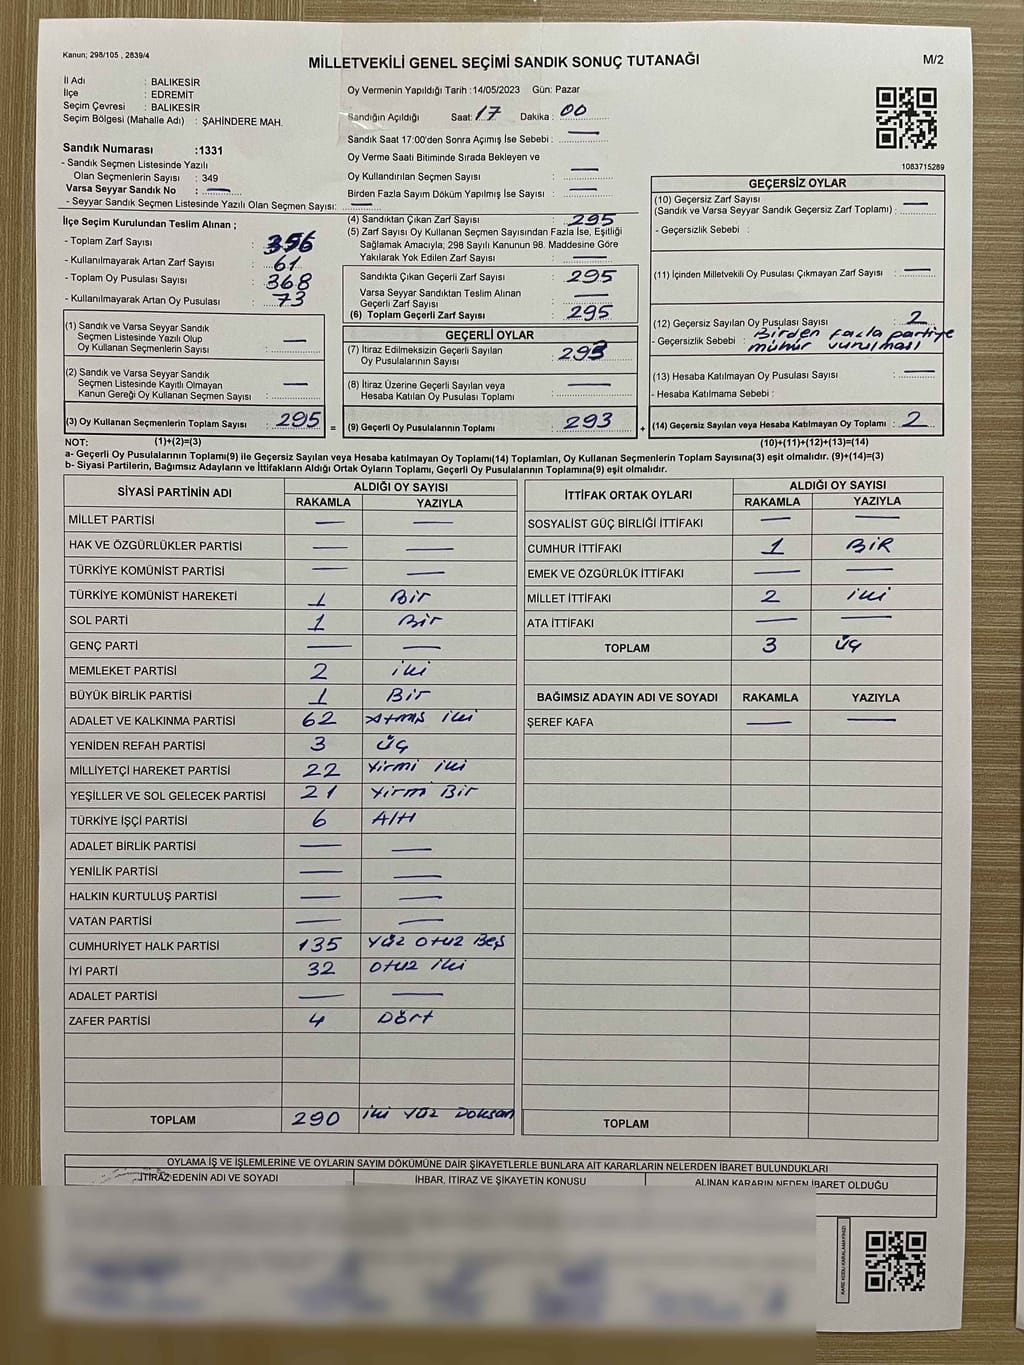 Kanun; 298/105 , 2839/4
MİLLETVEKİLİ GENEL SEÇİMİ SANDIK SONUÇ TUTANAĞI
M/2
İl Adı : BALIKESİR
İlçe : EDREMIT
Seçim Çevresi : BALIKESİR
Seçim Bölgesi (Mahalle Adı) : ŞAHİNDERE MAH.
Sandık Numarası :1331
- Sandık Seçmen Listesinde Yazılı
Olan Seçmenlerin Sayısı : 349
Varsa Seyyar Sandık No : —
- Seyyar Sandık Seçmen Listesinde Yazılı Olan Seçmen Sayısı: —
Oy Vermenin Yapıldığı Tarih :14/05/2023 Gün: Pazar
Sandığın Açıldığı Saat: 17 Dakika : 00
Sandık Saat 17:00'den Sonra Açımış İse Sebebi : —
Oy Verme Saati Bitiminde Sırada Bekleyen ve
Oy Kullandırılan Seçmen Sayısı : —
Birden Fazla Sayım Döküm Yapılmış İse Sayısı : —
1083715289
İlçe Seçim Kurulundan Teslim Alınan ;
- Toplam Zarf Sayısı : 356
- Kullanılmayarak Artan Zarf Sayısı : 61
- Toplam Oy Pusulası Sayısı : 368
- Kullanılmayarak Artan Oy Pusulası : 73
(1) Sandık ve Varsa Seyyar Sandık
Seçmen Listesinde Yazılı Olup
Oy Kullanan Seçmenlerin Sayısı : —
(2) Sandık ve Varsa Seyyar Sandık
Seçmen Listesinde Kayıtlı Olmayan
Kanun Gereği Oy Kullanan Seçmen Sayısı : —
(3) Oy Kullanan Seçmenlerin Toplam Sayısı : 295 =
(4) Sandıktan Çıkan Zarf Sayısı : 295
(5) Zarf Sayısı Oy Kullanan Seçmen Sayısından Fazla İse, Eşitliği
Sağlamak Amacıyla; 298 Sayılı Kanunun 98. Maddesine Göre
Yakılarak Yok Edilen Zarf Sayısı : —
Sandıkta Çıkan Geçerli Zarf Sayısı : 295
Varsa Seyyar Sandıktan Teslim Alınan
Geçerli Zarf Sayısı : —
(6) Toplam Geçerli Zarf Sayısı : 295
GEÇERLİ OYLAR
(7) İtiraz Edilmeksizin Geçerli Sayılan
Oy Pusulalarının Sayısı : 293
(8) İtiraz Üzerine Geçerli Sayılan veya
Hesaba Katılan Oy Pusulası Toplamı : —
(9) Geçerli Oy Pusulalarının Toplamı : 293 +
GEÇERSİZ OYLAR
(10) Geçersiz Zarf Sayısı : —
(Sandık ve Varsa Seyyar Sandık Geçersiz Zarf Toplamı)
- Geçersizlik Sebebi :
(11) İçinden Milletvekili Oy Pusulası Çıkmayan Zarf Sayısı : —
(12) Geçersiz Sayılan Oy Pusulası Sayısı : 2
- Geçersizlik Sebebi : Birden fazla partiye
mühür vurulması
(13) Hesaba Katılmayan Oy Pusulası Sayısı : —
- Hesaba Katılmama Sebebi :
(14) Geçersiz Sayılan veya Hesaba Katılmayan Oy Toplamı : 2
NOT: (1)+(2)=(3) (10)+(11)+(12)+(13)=(14)
a- Geçerli Oy Pusulalarının Toplamı(9) ile Geçersiz Sayılan veya Hesaba katılmayan Oy Toplamı(14) Toplamları, Oy Kullanan Seçmenlerin Toplam Sayısına(3) eşit olmalıdır. (9)+(14)=(3)
b- Siyasi Partilerin, Bağımsız Adayların ve İttifakların Aldığı Ortak Oyların Toplamı, Geçerli Oy Pusulalarının Toplamına(9) eşit olmalıdır.
SİYASİ PARTİNİN ADI ALDIĞI OY SAYISI
RAKAMLA YAZIYLA
MİLLET PARTİSİ — —
HAK VE ÖZGÜRLÜKLER PARTİSİ — —
TÜRKİYE KOMÜNİST PARTİSİ — —
TÜRKİYE KOMÜNİST HAREKETİ 1 Bir
SOL PARTİ 1 Bir
GENÇ PARTİ — —
MEMLEKET PARTİSİ 2 iki
BÜYÜK BİRLİK PARTİSİ 1 Bir
ADALET VE KALKINMA PARTİSİ 62 Atmış iki
YENİDEN REFAH PARTİSİ 3 üç
MİLLİYETÇİ HAREKET PARTİSİ 22 Yirmi iki
YEŞİLLER VE SOL GELECEK PARTİSİ 21 Yirmi Bir
TÜRKİYE İŞÇİ PARTİSİ 6 Altı
ADALET BİRLİK PARTİSİ — —
YENİLİK PARTİSİ — —
HALKIN KURTULUŞ PARTİSİ — —
VATAN PARTİSİ — —
CUMHURİYET HALK PARTİSİ 135 Yüz Otuz Beş
İYİ PARTİ 32 Otuz iki
ADALET PARTİSİ — —
ZAFER PARTİSİ 4 Dört
TOPLAM 290 iki Yüz Doksan
İTTİFAK ORTAK OYLARI ALDIĞI OY SAYISI
RAKAMLA YAZIYLA
SOSYALİST GÜÇ BİRLİĞİ İTTİFAKI — —
CUMHUR İTTİFAKI 1 BİR
EMEK VE ÖZGÜRLÜK İTTİFAKI — —
MİLLET İTTİFAKI 2 iki
ATA İTTİFAKI — —
TOPLAM 3 üç
BAĞIMSIZ ADAYIN ADI VE SOYADI RAKAMLA YAZIYLA
ŞEREF KAFA — —
TOPLAM
OYLAMA İŞ VE İŞLEMLERİNE VE OYLARIN SAYIM DÖKÜMÜNE DAİR ŞİKAYETLERLE BUNLARA AİT KARARLARIN NELERDEN İBARET BULUNDUKLARI
İTİRAZ EDENİN ADI VE SOYADI İHBAR, İTİRAZ VE ŞİKAYETİN KONUSU ALINAN KARARIN NEDEN İBARET OLDUĞU
KARE KODU KARALAMAYINIZ!